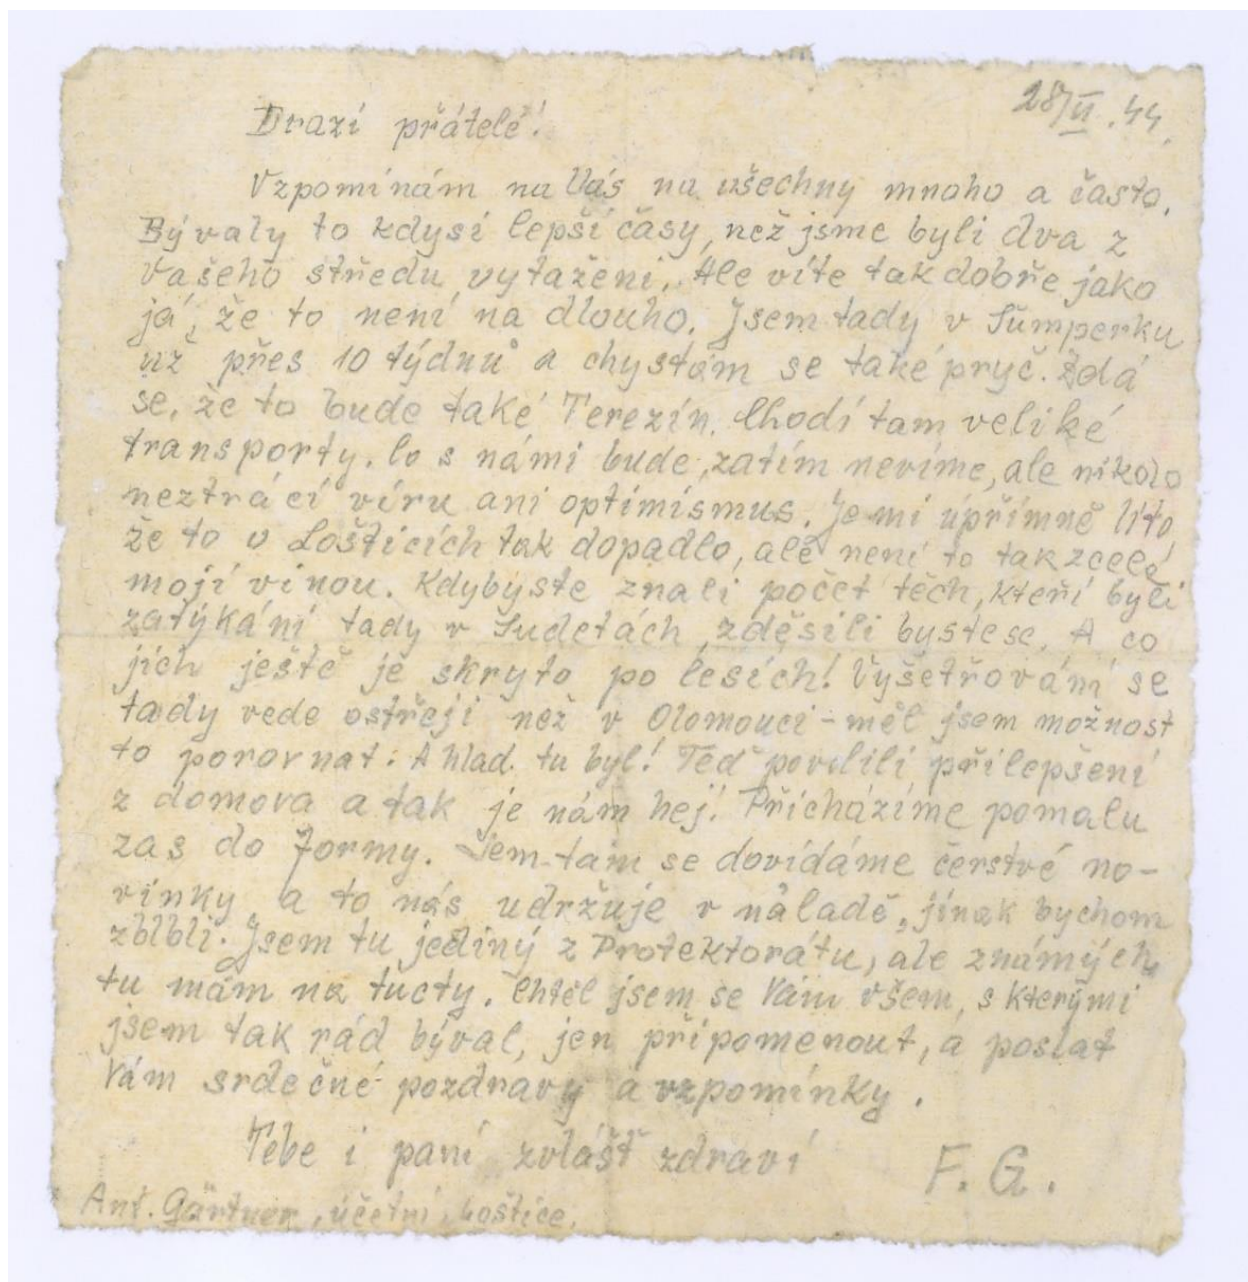 28/II.44.
Drazí přátelé!
Vzpomínám na Vás na všechny mnoho a často.
Bývaly to kdysi lepší časy, než jsme byli dva z
Vašeho středu vytaženi. Ale víte tak dobře jako
já, že to není na dlouho. Jsem tady v Šumperku
už přes 10 týdnů a chystám se také pryč. Zdá
se, že to bude také Terezín. Chodí tam veliké
transporty. Co s námi bude, zatím nevíme, ale nikdo
neztrácí víru ani optimismus. Je mi úpřímně líto,
že to v Lošticích tak dopadlo, ale není to tak zcela
mojí vinou. Kdybyste znali počet těch, kteří byli
zatýkáni tady v Sudetách, zděsili bystese. A co
jich ještě je skryto po lesích! Vyšetřování se
tady vede ostřeji než v Olomouci - měl jsem možnost
to porovnat. A hlad tu byl! Teď povolili přilepšení
z domova a tak je nám hej! Přicházíme pomalu
zas do formy. Sem-tam se dovídáme čerstvé no-
vinky a to nás udržuje v náladě, jinak bychom
zblbli. Jsem tu jediný z Protektorátu, ale známých
tu mám na tucty. Chtěl jsem se Vám všem, s kterými
jsem tak rád býval, jen připomenout, a poslat
Vám srdečné pozdravy a vzpomínky.
Tebe i paní zvlášť zdraví F. G.
Ant. Gärtner, účetní, Loštice.